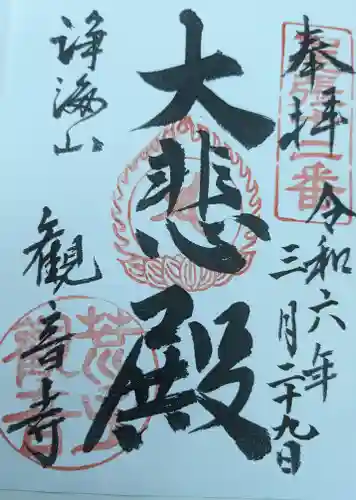 奉拝
令和六年
三月二十九日
大悲殿
浄海山
観音寺